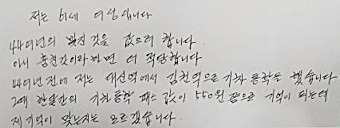 저는 61세 여성입니다
44여년의 빚진 것을 갚으려 합니다
아니 훔친것이라하면 더 적당합니다
44여년전에 저는 대신역에서 김천역으로 기차 통학을 했습니다
그때 한달간의 기차통학 패스 값이 550원 쯤으로 기억이 되는데
제 기억이 맞는지는 모르겠습니다